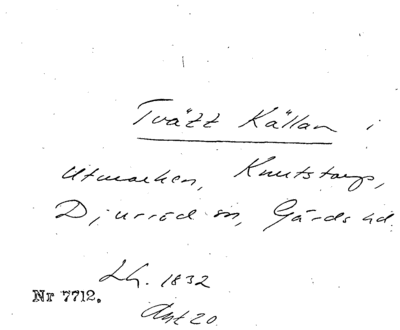 Tvätt Källan i
Utmarken, Knutstorp,
Djurröd sn, Gärds hd.
Lh. 1832
Nr 7712.
Akt 20